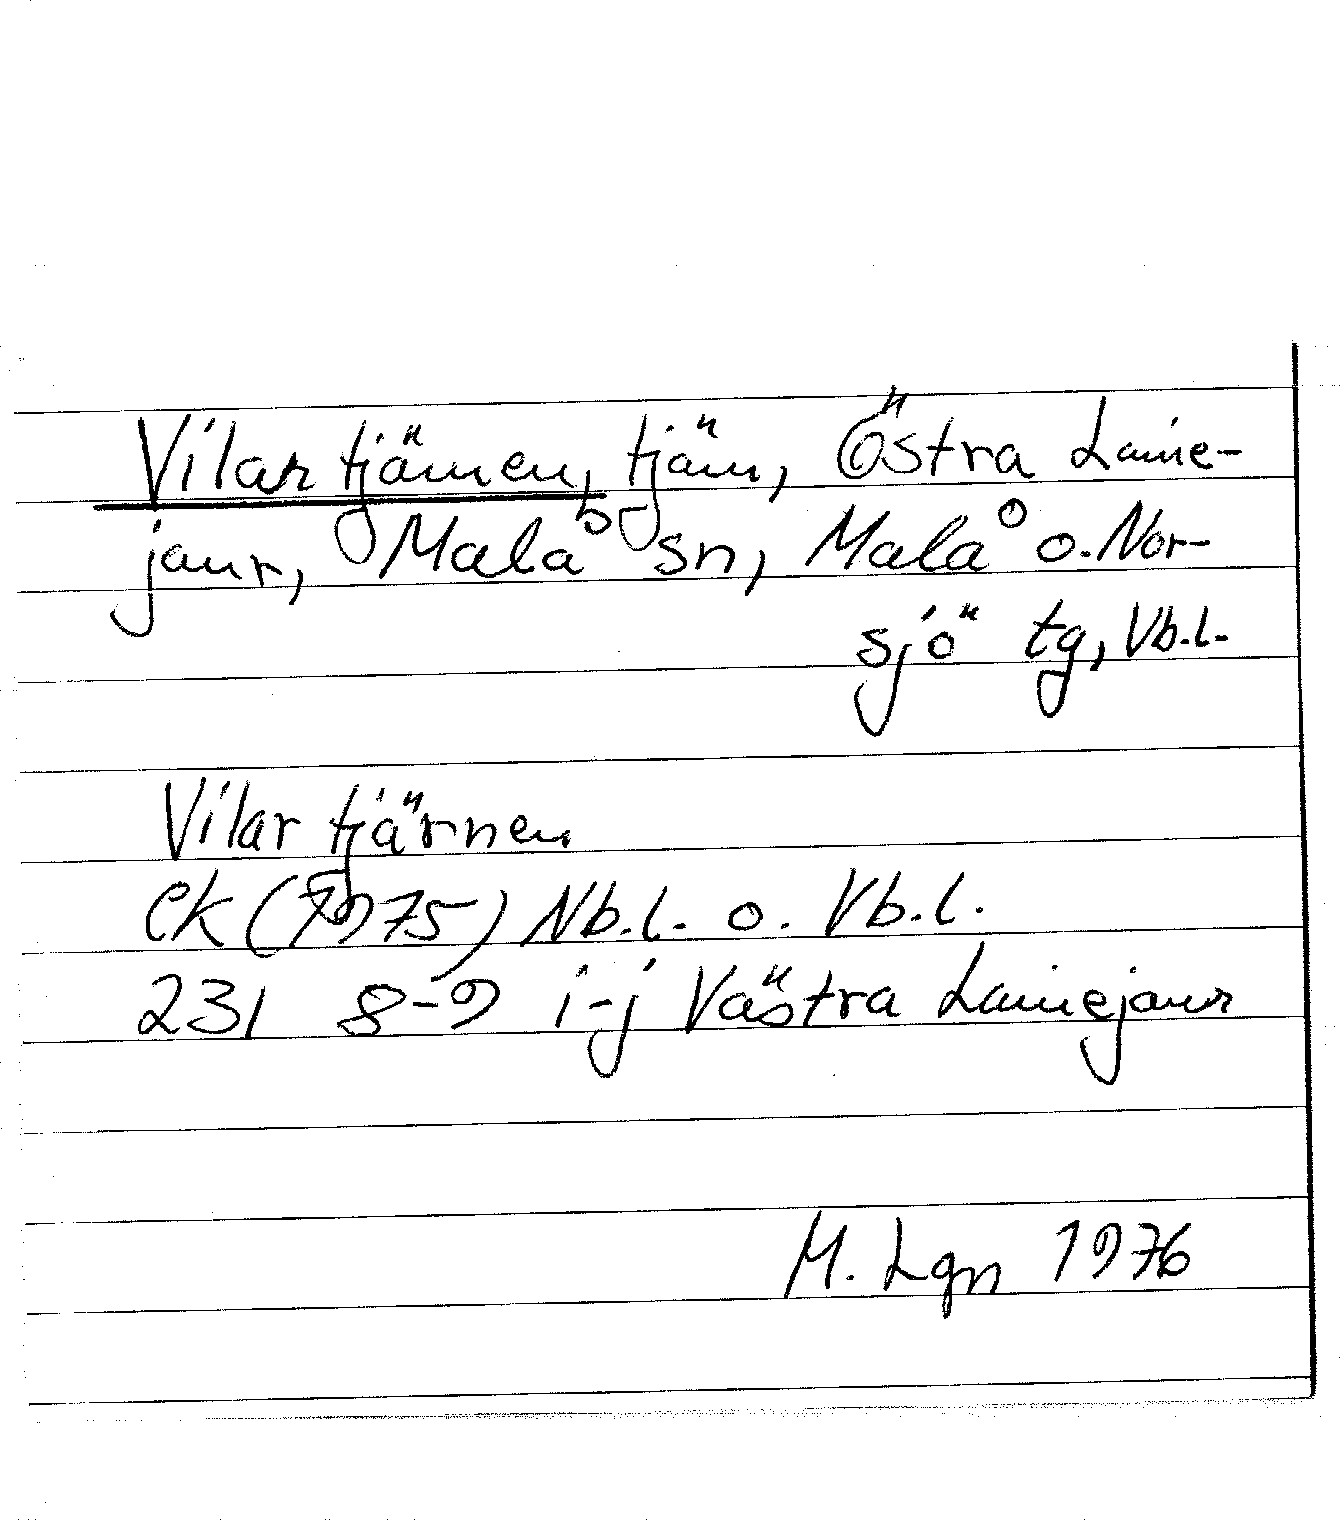 Vilartjärnen, tjärn, Östra Laine-
jaur, Malå sn, Malå o. Nor-
sjö tg, Vb.l.
Vilartjärnen
ek (1975) Nb.l. o. Vb.l.
231 8-9 i-j Västra Lainejaur
M. Lgn 1976